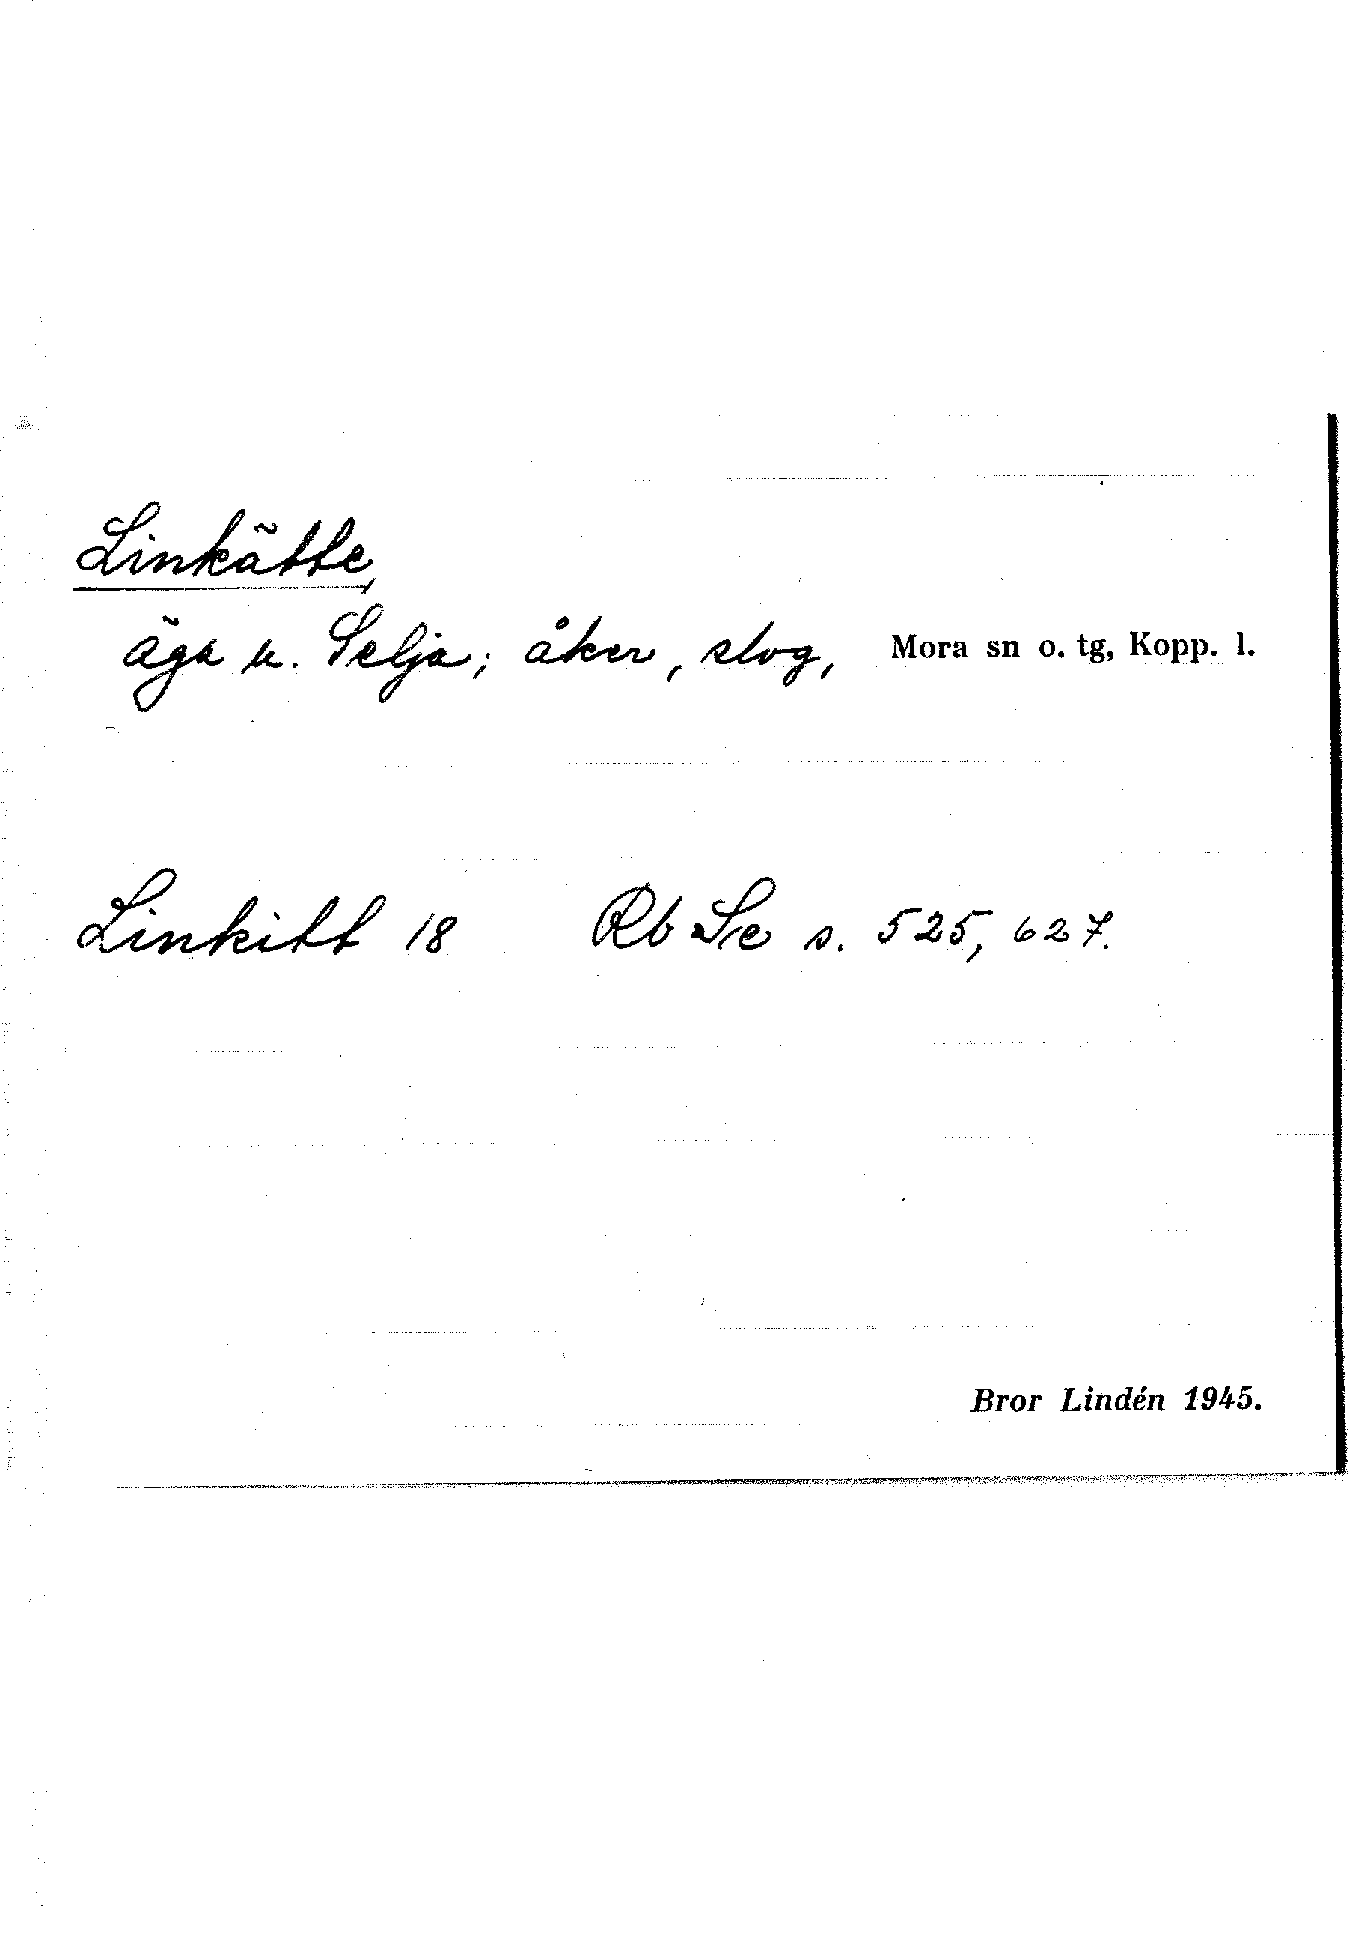 Linkätte,
äga u. Selja; åker, slog, Mora sn o. tg, Kopp. l.
Linkitt 18 Rb Se s. 525, 627.
Bror Lindén 1945.